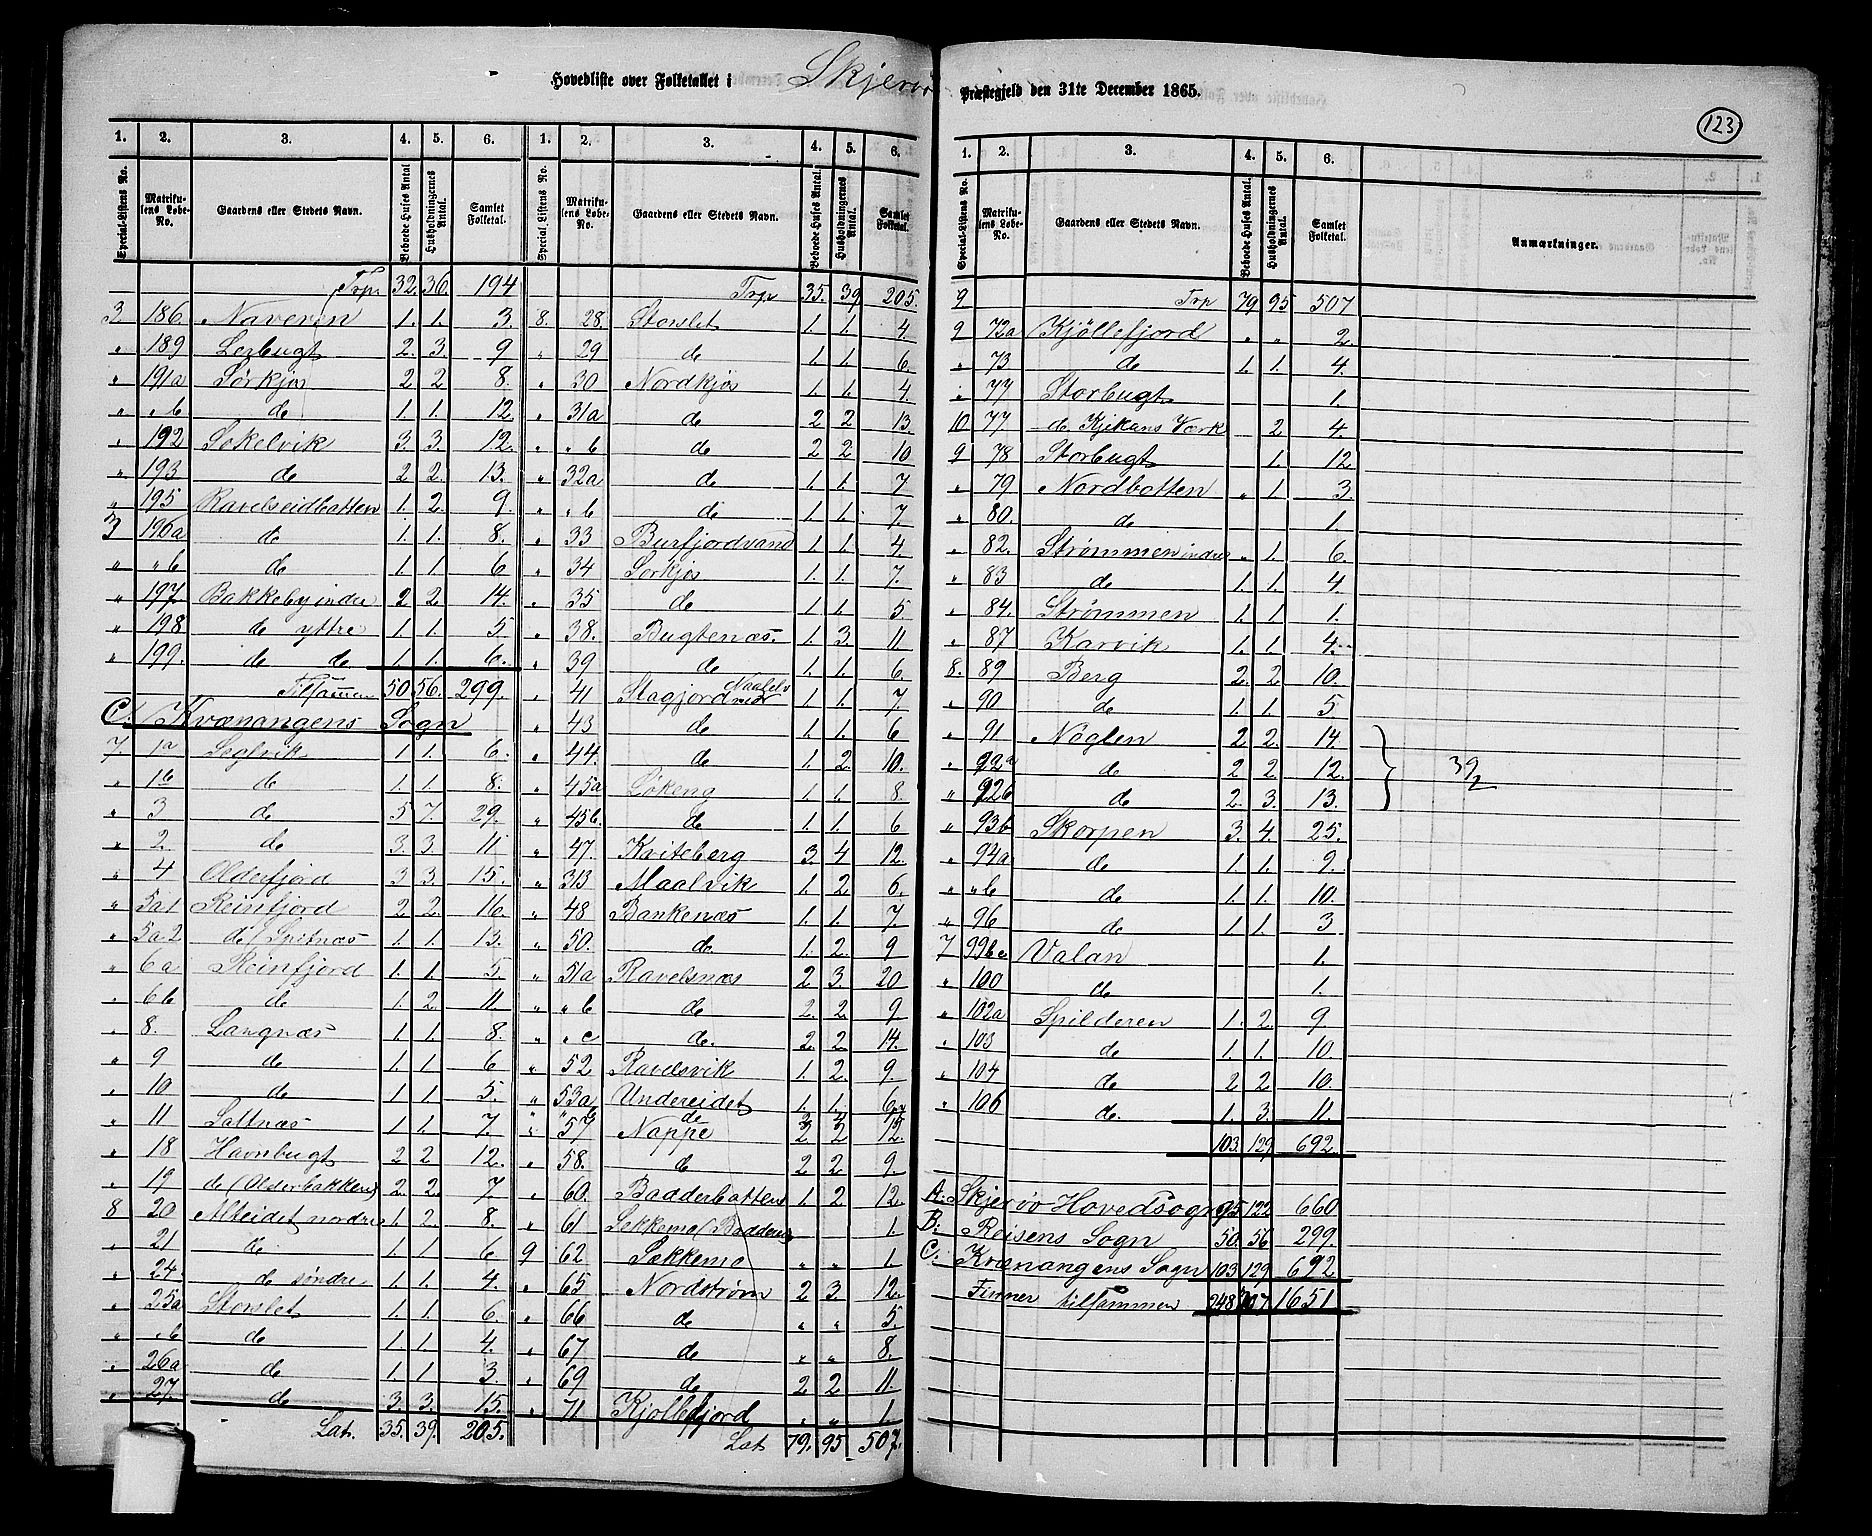 Hovedliste over Folketallet i Skjervø Præstegjeld den 31te December 1865.
123
1. 2. 3. 4. 5. 6.
Special-Listens No. Matrikulens Løbe-No. Gaardens eller Stedets Navn. Beboede Huses Antal Husholdningernes Antal. Samlet Folketal.
Trp 32. 36. 194
3 186. Naveren 1. 1. 3.
" 189 Lerbugt 2. 3. 9
" 191a Sørkjos 2 2 8.
" " b do 1. 1. 12.
" 192 Sokelvik 3. 3. 12.
" 193 do 2 2. 13.
" 195 Ravelseidbotten 1. 2. 9.
3 196a do 1. 1. 8.
" " b do 1. 1. 6
" 197 Bakkeby indre 2 2. 14.
" 198 do yttre 1. 1. 5.
" 199. do do 1. 1. 6.
Tilsammen 50. 56. 299.
C. Kvænangens Sogn
7. 1a Seglvik 1 1. 6.
" 1b do 1. 1 8.
" 3 do 5 7. 29.
" 2. do 3. 3. 11
" 4 Olderfjord 3 3. 15.
" 5a1 Reinfjord 2 2. 16.
" 5a.2 do / Spitnæs 1. 1. 13.
" 6a Reinfjord 1. 1. 5.
" 6b do 1. 2. 11.
" 8. Langnæs 1. 1. 8.
" 9 do 1. 1. 6
" 10 do 1 1 5.
" 11 Saltnæs 1. 1. 7.
" 18 Havnbugt 2 2 12.
" 19 do (Olderbakken) 2. 2. 7
8 20 Alteidet nordre 1. 2. 8.
" 21 do 1. 1 6
" 24 do søndre 1. 1. 4.
" 25a Storslet 1. 1. 6.
" " b do 1. 1. 4.
" 26a do 1. 1 3.
" 27. do 3. 3. 15.
Lat. 35. 39. 205.
1. 2. 3. 4. 5. 6.
Special-Listens No. Matrikulens Løbe-No. Gaardens eller Stedets Navn. Beboede Huses Antal. Husholdningernes Antal. Samlet Folketal.
Trp 35. 39 205.
8. 28. Storslet 1. 1. 4.
" 29 do 1. 1. 6.
" 30 Nordkjos 1. 1. 4
" 31a do 2 2 13.
" " b do 2 2 10
" 32a do 1. 1. 7
" " b do 1. 1. 7.
" 33 Burfjordvand 1. 1. 4.
" 34 Sorkjos 1. 1. 7.
" 35 do 1. 1. 5
" 38. Bugtenæs. 1. 3. 11
" 39 do 1. 1. 6.
" 41 Stagjord 1. 1. 7.
" 43 do 1. 1. 6
" 44. do 1. 2. 10.
" 45a Løkeng 1. 1 8.
" 45b. do 1. 1. 6
" 47. Kviteberg 3. 4 12.
" 313 Maalvik 1. 2 6.
" 48 Bankenæs 1. 1. 7.
" 50. do 1. 2. 9
" 51a Ravelsnæs 2 3. 20
" " b do 2. 2. 9
" " c do. 2. 2. 14.
" 52 Ravelsvik 1. 2. 9.
" 53a Undereidet 1. 1. 6.
" " b do
" 57 Nappe 2 2 12.
" 58. do 2 2 9.
" 60. Badderbotten 1. 2 12.
" 61 Sekkemo (Badderen) 1.
9 62 Sekkemo " " 1.
" 65 Nordstrøm 2 3. 12.
" 66 do " " 5.
" 67 do " " 8.
" 69 do 2 2 11.
" 71 Kjollefjord " " 1.
Lat 79. 95 507.
1. 2. 3. 4. 5. 6.
Special-Listens No. Matrikulens Løbe-No. Gaardens eller Stedets Navn. Beboede Huses Antal. Husholdningernes Antal. Samlet Folketal. Anmærkninger.
9 Trp 79 95 507
9 72a Kjöllefjord " " 2.
" 73 do 1. 1. 4.
" 77 Storbugt 1.
10. 77 do Kjækans Værk 2 4.
9 78 Storbugt 1. 12
" 79 Nordbotten " 1 3
" 80. do 1.
" 82. Strømmen indre " 1. 6.
" 83 do 1. 1. 4
" 84. Strømmen 1. 1 1.
" 87 Karvik 1. 1 4.
8. 89 Berg 2. 2 10.
" 90 do 1. 1. 5
" 91 Nöglen 2. 2. 14.
" 92a do 2 2. 12. } 39
" 92b do 2. 3. 13.
" 93b Skorpen 3. 4. 25.
" 94a do 1. 1. 9.
" " b do 1. 1. 10.
" 96 do 1 1. 3
7 99ba Valan 1.
" 100 do 1.
" 102a Spilderen 1. 2. 9.
" 103 do 1. 1. 10.
" 104 do 2 2 10.
" 106 do. 1. 3. 11.
103. 129 692.
A. Skjervøv Hovedsogn 95 122 660
B. Reisens Sogn 50. 56 299.
C. Kvænangens Sogn 103 129 692
Finner tilsammen 248 307 1651